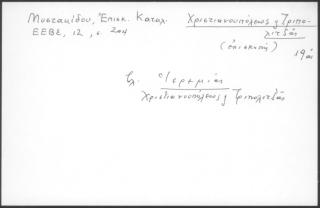 Μυστακίδου, Ἐπισκ. Καταλ.
ΕΕΒΣ, 12, σ. 204
Χριστιανουπόλεως ἢ Τριπο-
λιτζᾶς
(ἐπισκοπή)
19ος
βλ. Ἰερεμίας
Χριστιανουπόλεως ἢ Τριπολιτζᾶς